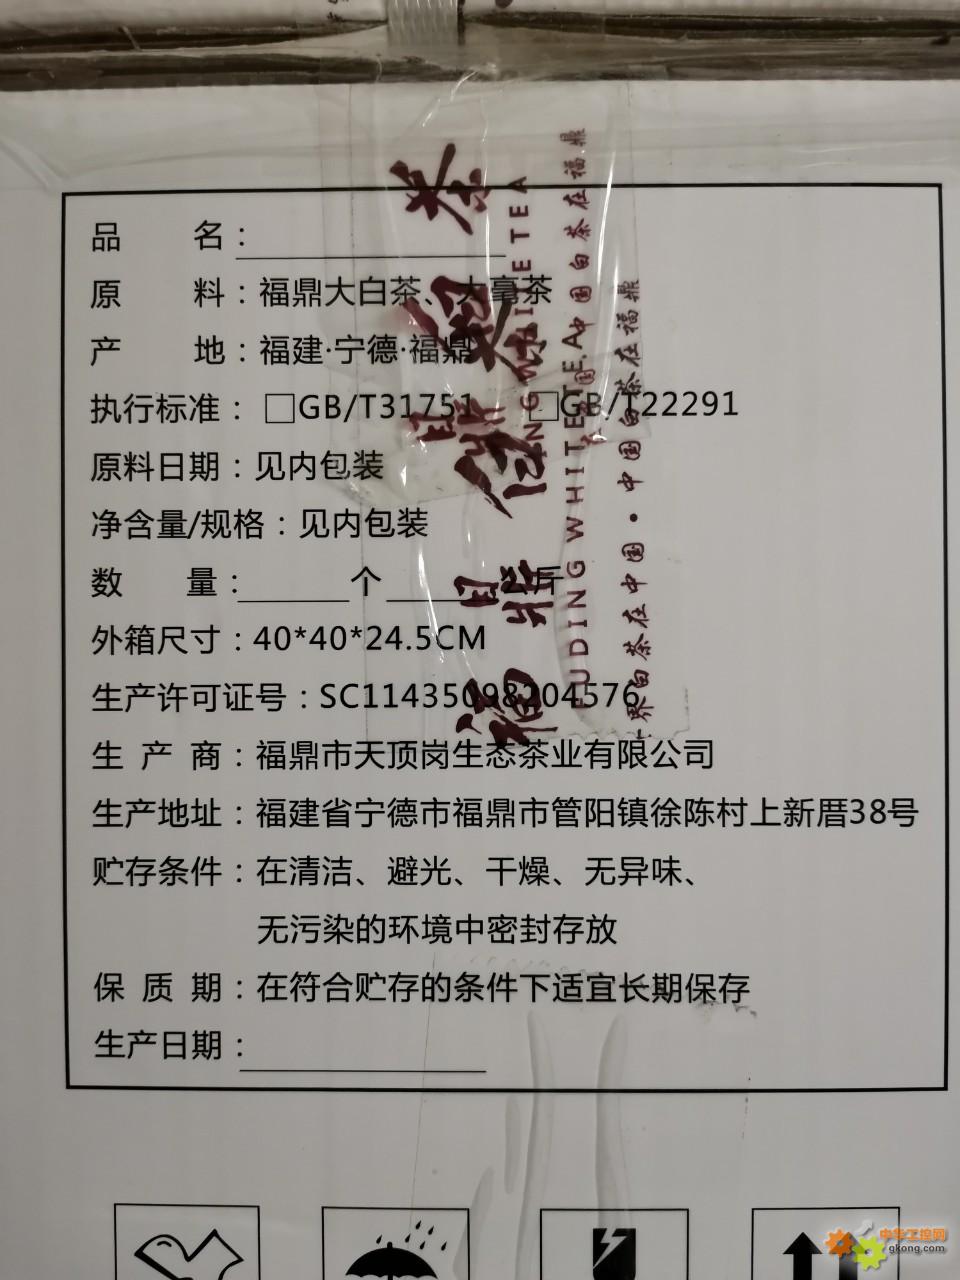 品 名：
原 料：福鼎大白茶、大毫茶
产 地：福建·宁德·福鼎
执行标准：□GB/T31751 □GB/T22291
原料日期：见内包装
净含量/规格：见内包装
数 量： 个 公斤
外箱尺寸：40*40*24.5CM
生产许可证号：SC11435098204576
生 产 商：福鼎市天顶岗生态茶业有限公司
生产地址：福建省宁德市福鼎市管阳镇徐陈村上新厝38号
贮存条件：在清洁、避光、干燥、无异味、
无污染的环境中密封存放
保 质 期：在符合贮存的条件下适宜长期保存
生产日期：
福鼎白茶
FUDING WHITE TEA
世界白茶在中国·中国白茶在福鼎
中国白茶在福鼎
中华工控网
gkong.com